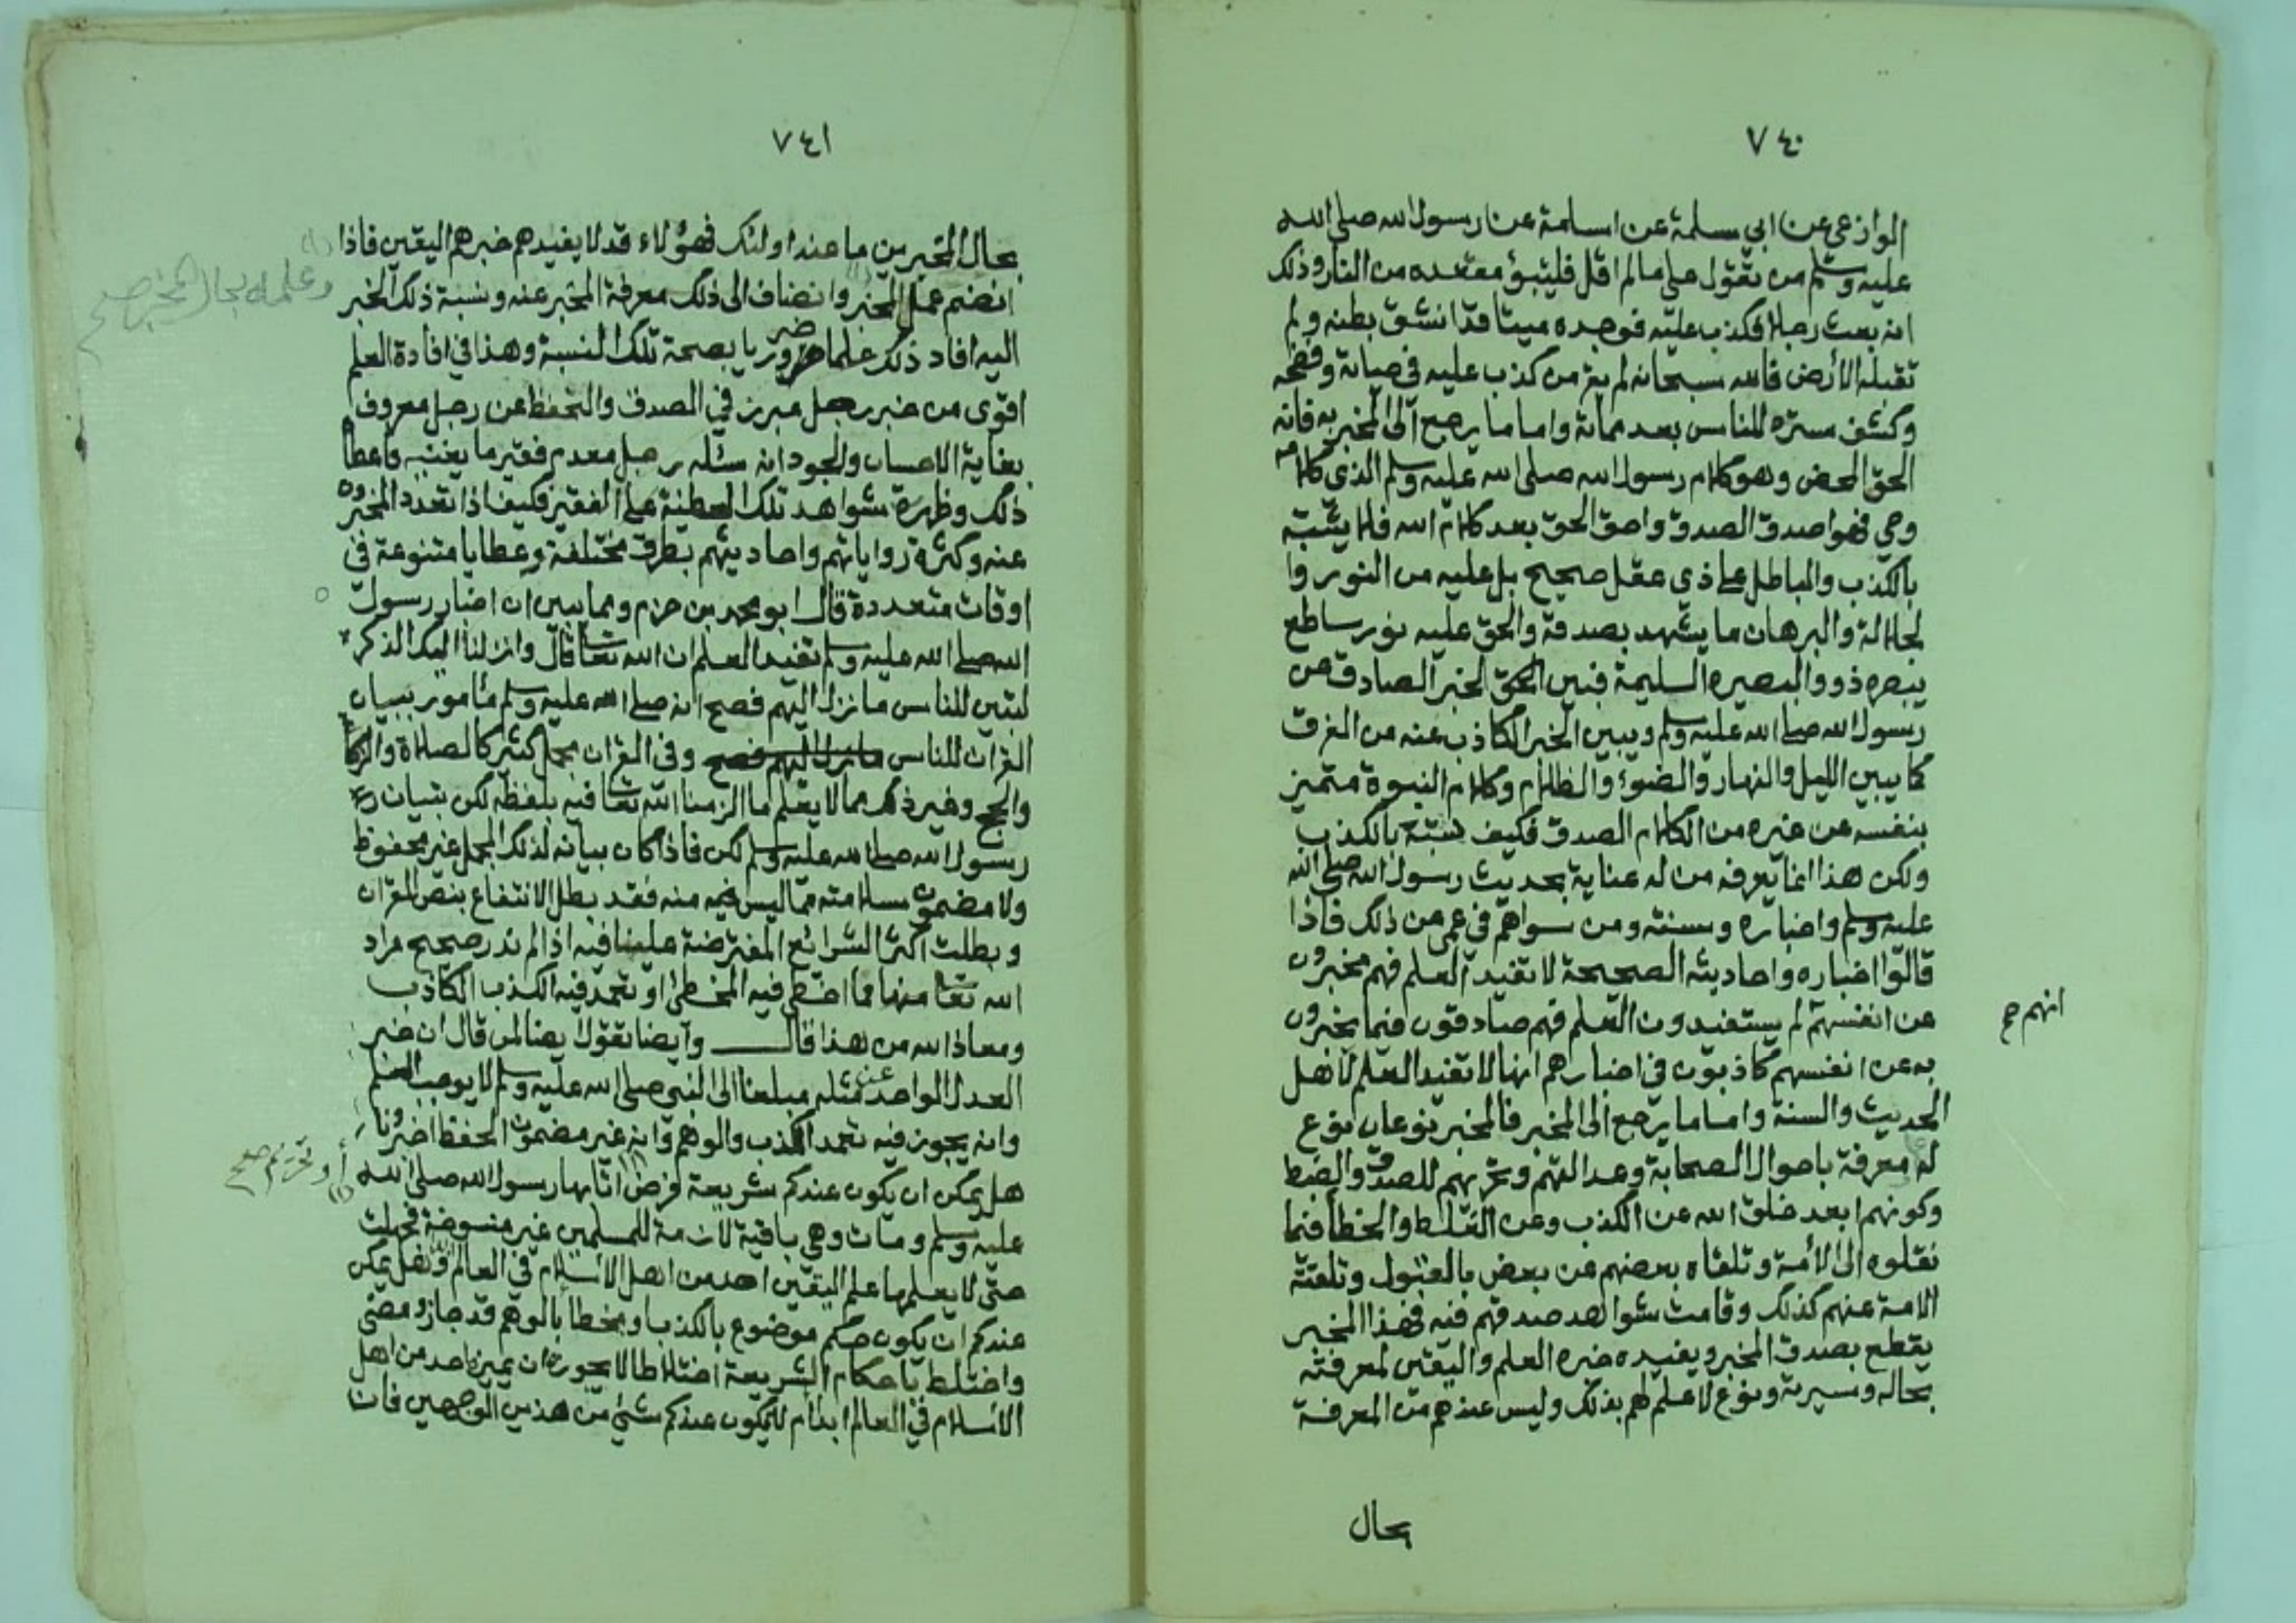 ٧٤٠
الوازعي عن ابي سلمة عن اسامة عن رسول الله صلى الله
عليه وسلم من تقول علي مالم اقل فليتبؤ مقعده من النار وذلك
انه بعث رجلا فكذب عليه فوجده ميتا قد انشق بطنه ولم
تقبله الأرض فالله سبحانه لم يقر من كذب عليه في حياته وفضحه
وكشف ستره للناس بعد مماته واما ما يرجع الى المخبر به فانه
الحق المحض وهو كلام رسول الله صلى الله عليه وسلم الذي كلامه
وحي فهو اصدق الصدق واحق الحق بعد كلام الله فلا يشتبه
بالكذب والباطل على ذي عقل صحيح بل عليه من النور وا
لجلالة والبرهان ما يشهد بصدقه والحق عليه نور ساطع
يبصره ذوو البصيره السليمة فبين الحق لخبر الصادق عن
رسول الله صلى الله عليه وسلم ويبين الخبر الكاذب عنه من الفرق
كما يبين الليل والنهار والضوء والظلام وكلام النبوة متميز
بنفسه عن غيره من الكلام الصدق فكيف يشتبه بالكذب
ولكن هذا انما يعرفه من له عناية بحديث رسول الله صلى الله
عليه وسلم واخباره وسنته ومن سواهم في عمى عن ذلك فاذا
قالوا اخباره واحاديثه الصحيحة لا تفيد العلم فهم مخبرون
عن انفسهم لم يستفيدون العلم فهم صادقون فيما يخبرون
انهم صح
به عن انفسهم كاذبون في اخبارهم انها لا تفيد العلم لاهل
الحديث والسنة واما ما يرجع الى المخبر فالمخبر نوعان نوع
له معرفة باحوال الصحابة وعدالتهم وتحريهم للصدق والضبط
وكونهم ابعد خلق الله عن الكذب وعن الغلط والخطأ فيما
نقلوه الى الأمة وتلقاه بعضهم عن بعض بالقبول وتلقته
الامة عنهم كذلك وقامت شواهد صدقهم فيه فهذا المخبر
يقطع بصدق المخبر ويفيده خبره العلم واليقين لمعرفته
بحاله وسيرته ونوع لا علم لهم بذلك وليس عندهم من المعرفة
بحال
٧٤١
بحال المخبرين ما عند اولئك فهؤلاء قد لا يفيدهم خبرهم اليقين فاذا
انضم عمل المخبر وانضاف الى ذلك معرفة المخبر عنه ونسبة ذلك الخبر
وعلمه بحال المخبر صح
اليه افاد ذلك علما ضروريا بصحة تلك النسبة وهذا في افادة العلم
اقوى من خبر رجل مبرز في الصدق والتحفظ عن رجل معروف
بغاية الاحسان والجود انه سئله رجل معدم فقير ما يغنيه فاعطا
ذلك وظهرت شواهد تلك العطية على الفقير فكيف اذا تعدد المخبرون
عنه وكثرة رواياتهم واحاديثهم بطرق مختلفة وعطايا متنوعة في
اوقات متعددة قال ابو محمد بن حزم ومما يبين ان اخبار رسول
الله صلى الله عليه وسلم تفيد العلم ان الله تعا قال وانزلنا اليك الذكر
لتبين للناس ما نزل اليهم فصح انه صلى الله عليه وسلم مأمور ببيان
القران للناس ما نزل اليهم فصح وفي القران مجمل كثير كالصلاة والزكا
والحج وغير ذلك مما لا يعلم ما الزمنا الله تعا فيه بلفظه لكن بتبيان
رسول الله صلى الله عليه وسلم لكن فاذا كان بيانه لذلك المجمل غير محفوظ
ولا مضمون سلامته مما ليس فيه منه فقد بطل الانتفاع بنص القران
وبطلت اكثر الشرائع المفترضة علينا فيه اذا لم ندر صحيح مراد
الله تعا منها مما اخطى فيه المخطئ او تعمد فيه الكذب الكاذب
ومعاذ الله من هذا قال وايضا نقول ايضا لمن قال ان خبر
العدل الواحد عن مثله مبلغا الى النبي صلى الله عليه وسلم لا يوجب العلم
وانه يجوز فيه تعمد الكذب والوهم وانه غير مضمون الحفظ اخبرونا
هل يمكن ان يكون عندكم شريعة فرض اتا بها رسول الله صلى الله
أو تحريم صح
عليه وسلم ومات وهي باقية لازمة للمسلمين غير منسوخة فجهلت
حتى لا يعلمها علم اليقين احد من اهل الاسلام في العالم وهل يمكن
عندكم ان يكون حكم موضوع بالكذب او بخطا بالوهم قد جاز ومضى
واختلط باحكام الشريعة اختلاطا لا يجوز ان يميزه احد من اهل
الاسلام في العالم ابدا ام لا يكون عندكم شئ من هذين الوجهين فان